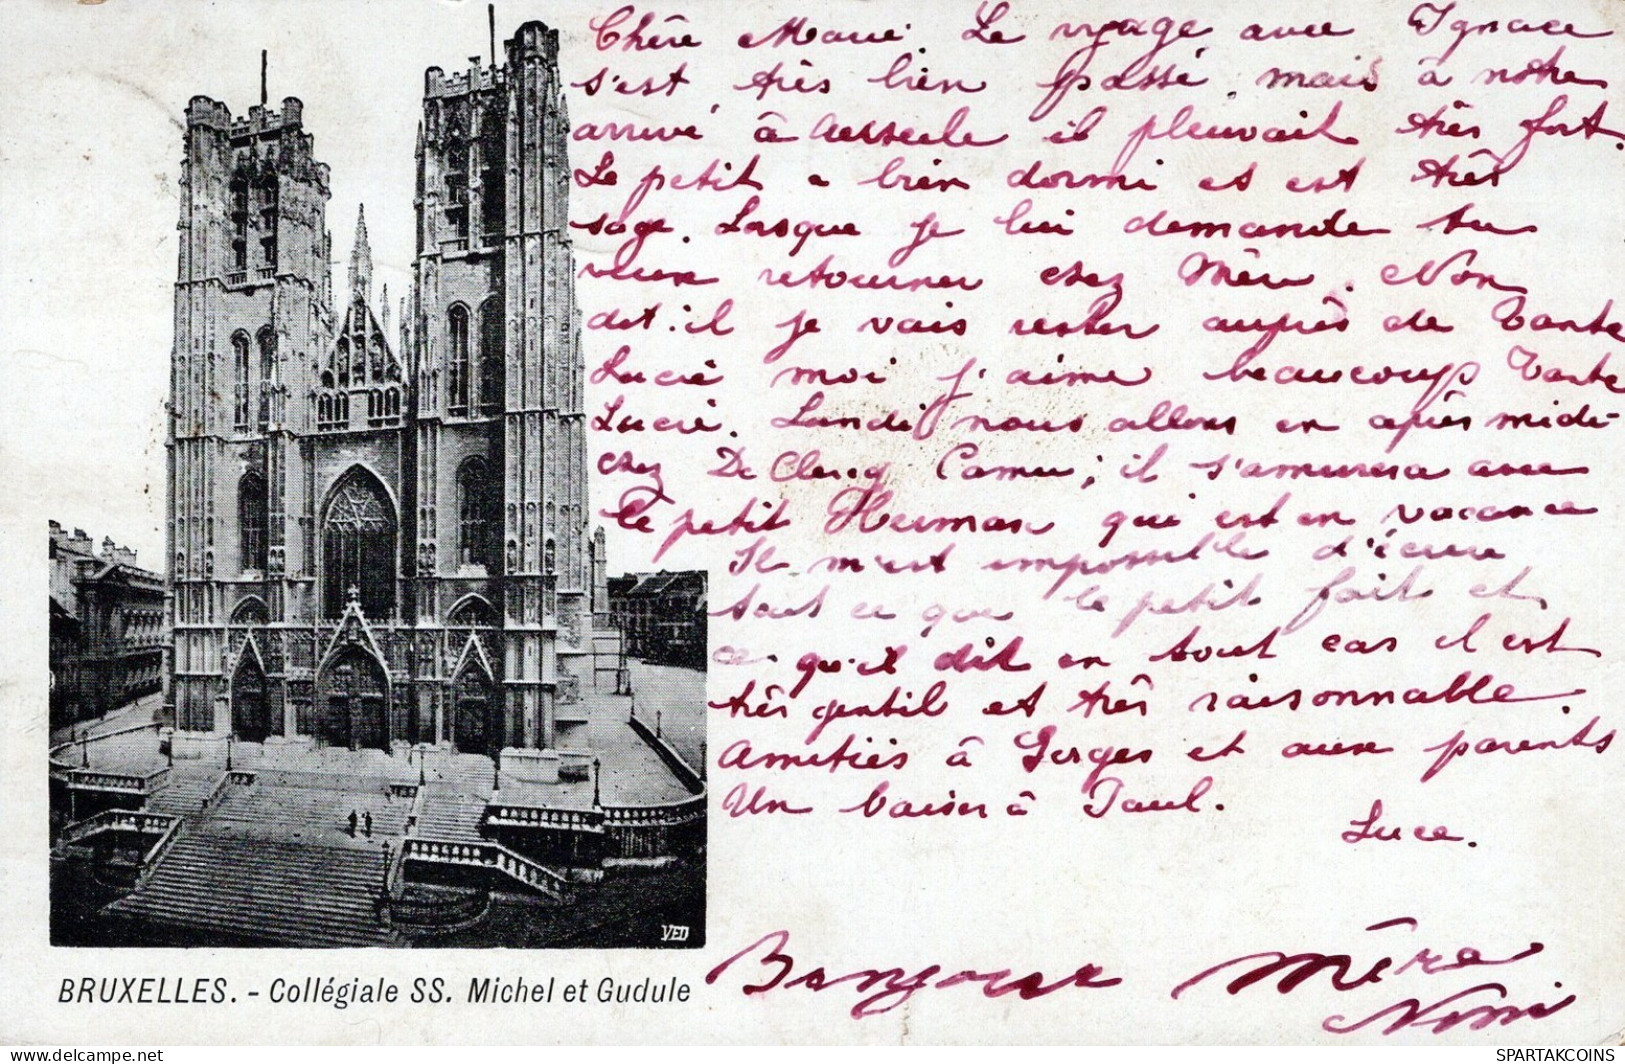 Chère Marie. Le voyage avec Ignace
s'est très bien passé, mais à notre
arrivé à il pleuvait très fort.
Le petit a bien dormi et est très
sage. Lorsque je lui demande tu
veux retourner chez Mère. Non
dit-il je vais rester auprès de Tante
Lucie moi j'aime beaucoup Tante
Lucie. Lundi nous allons en après midi
chez De Clercq Camu; il s'amusera avec
le petit Herman qui est en vacance
Il m'est impossible d'écrire
tout ce que le petit fait et
ce qu'il dit en tout cas il est
très gentil et très raisonnable.
Amitiés à Serges et aux parents
Un baiser à Paul.
Luce.
Bonjour Mère
Nini
VED
BRUXELLES. - Collégiale SS. Michel et Gudule
WWW.SPARTAKCOINS.COM